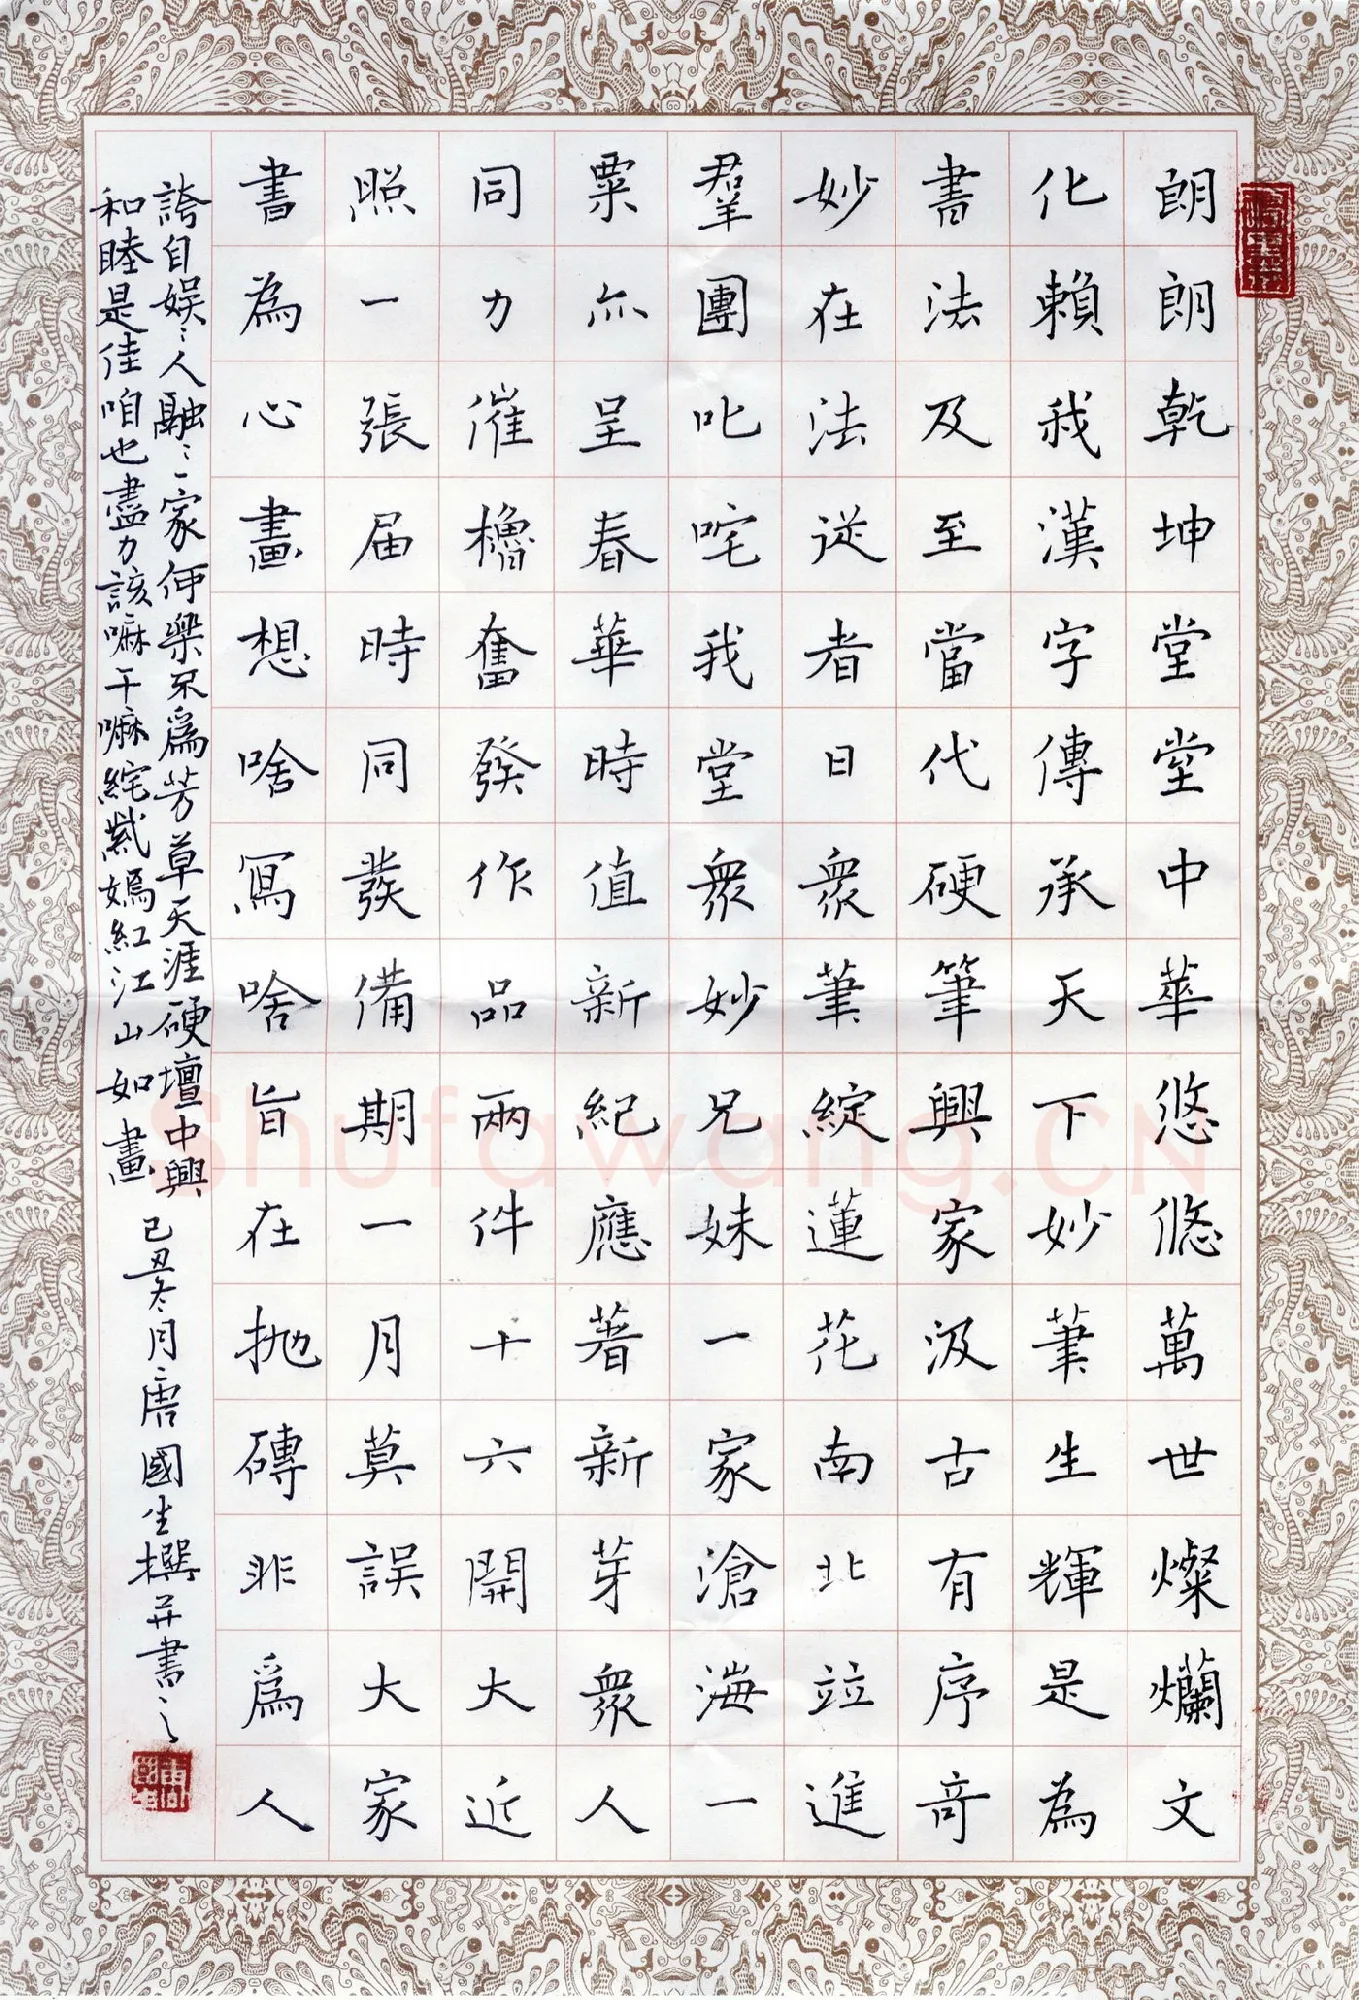 朗朗乾坤堂堂中華悠悠萬世燦爛文
化賴我漢字傳承天下妙筆生輝是為
書法及至當代硬筆興家汲古有序奇
妙在法從者日衆筆綻蓮花南北竝進
羣團叱咤我堂衆妙兄妹一家滄海一
粟亦呈春華時值新紀應著新芽衆人
同力催櫓奮發作品兩件十六開大近
照一張届時同發備期一月莫誤大家
書為心畫想啥寫啥旨在抛磚非爲人
誇自娱〻人融〻一家何樂不爲芳草天涯硬壇中興
和睦是佳咱也盡力該嘛干嘛綻紫嫣紅江山如畫
己丑冬月唐國生撰并書之
Shufawang.CN